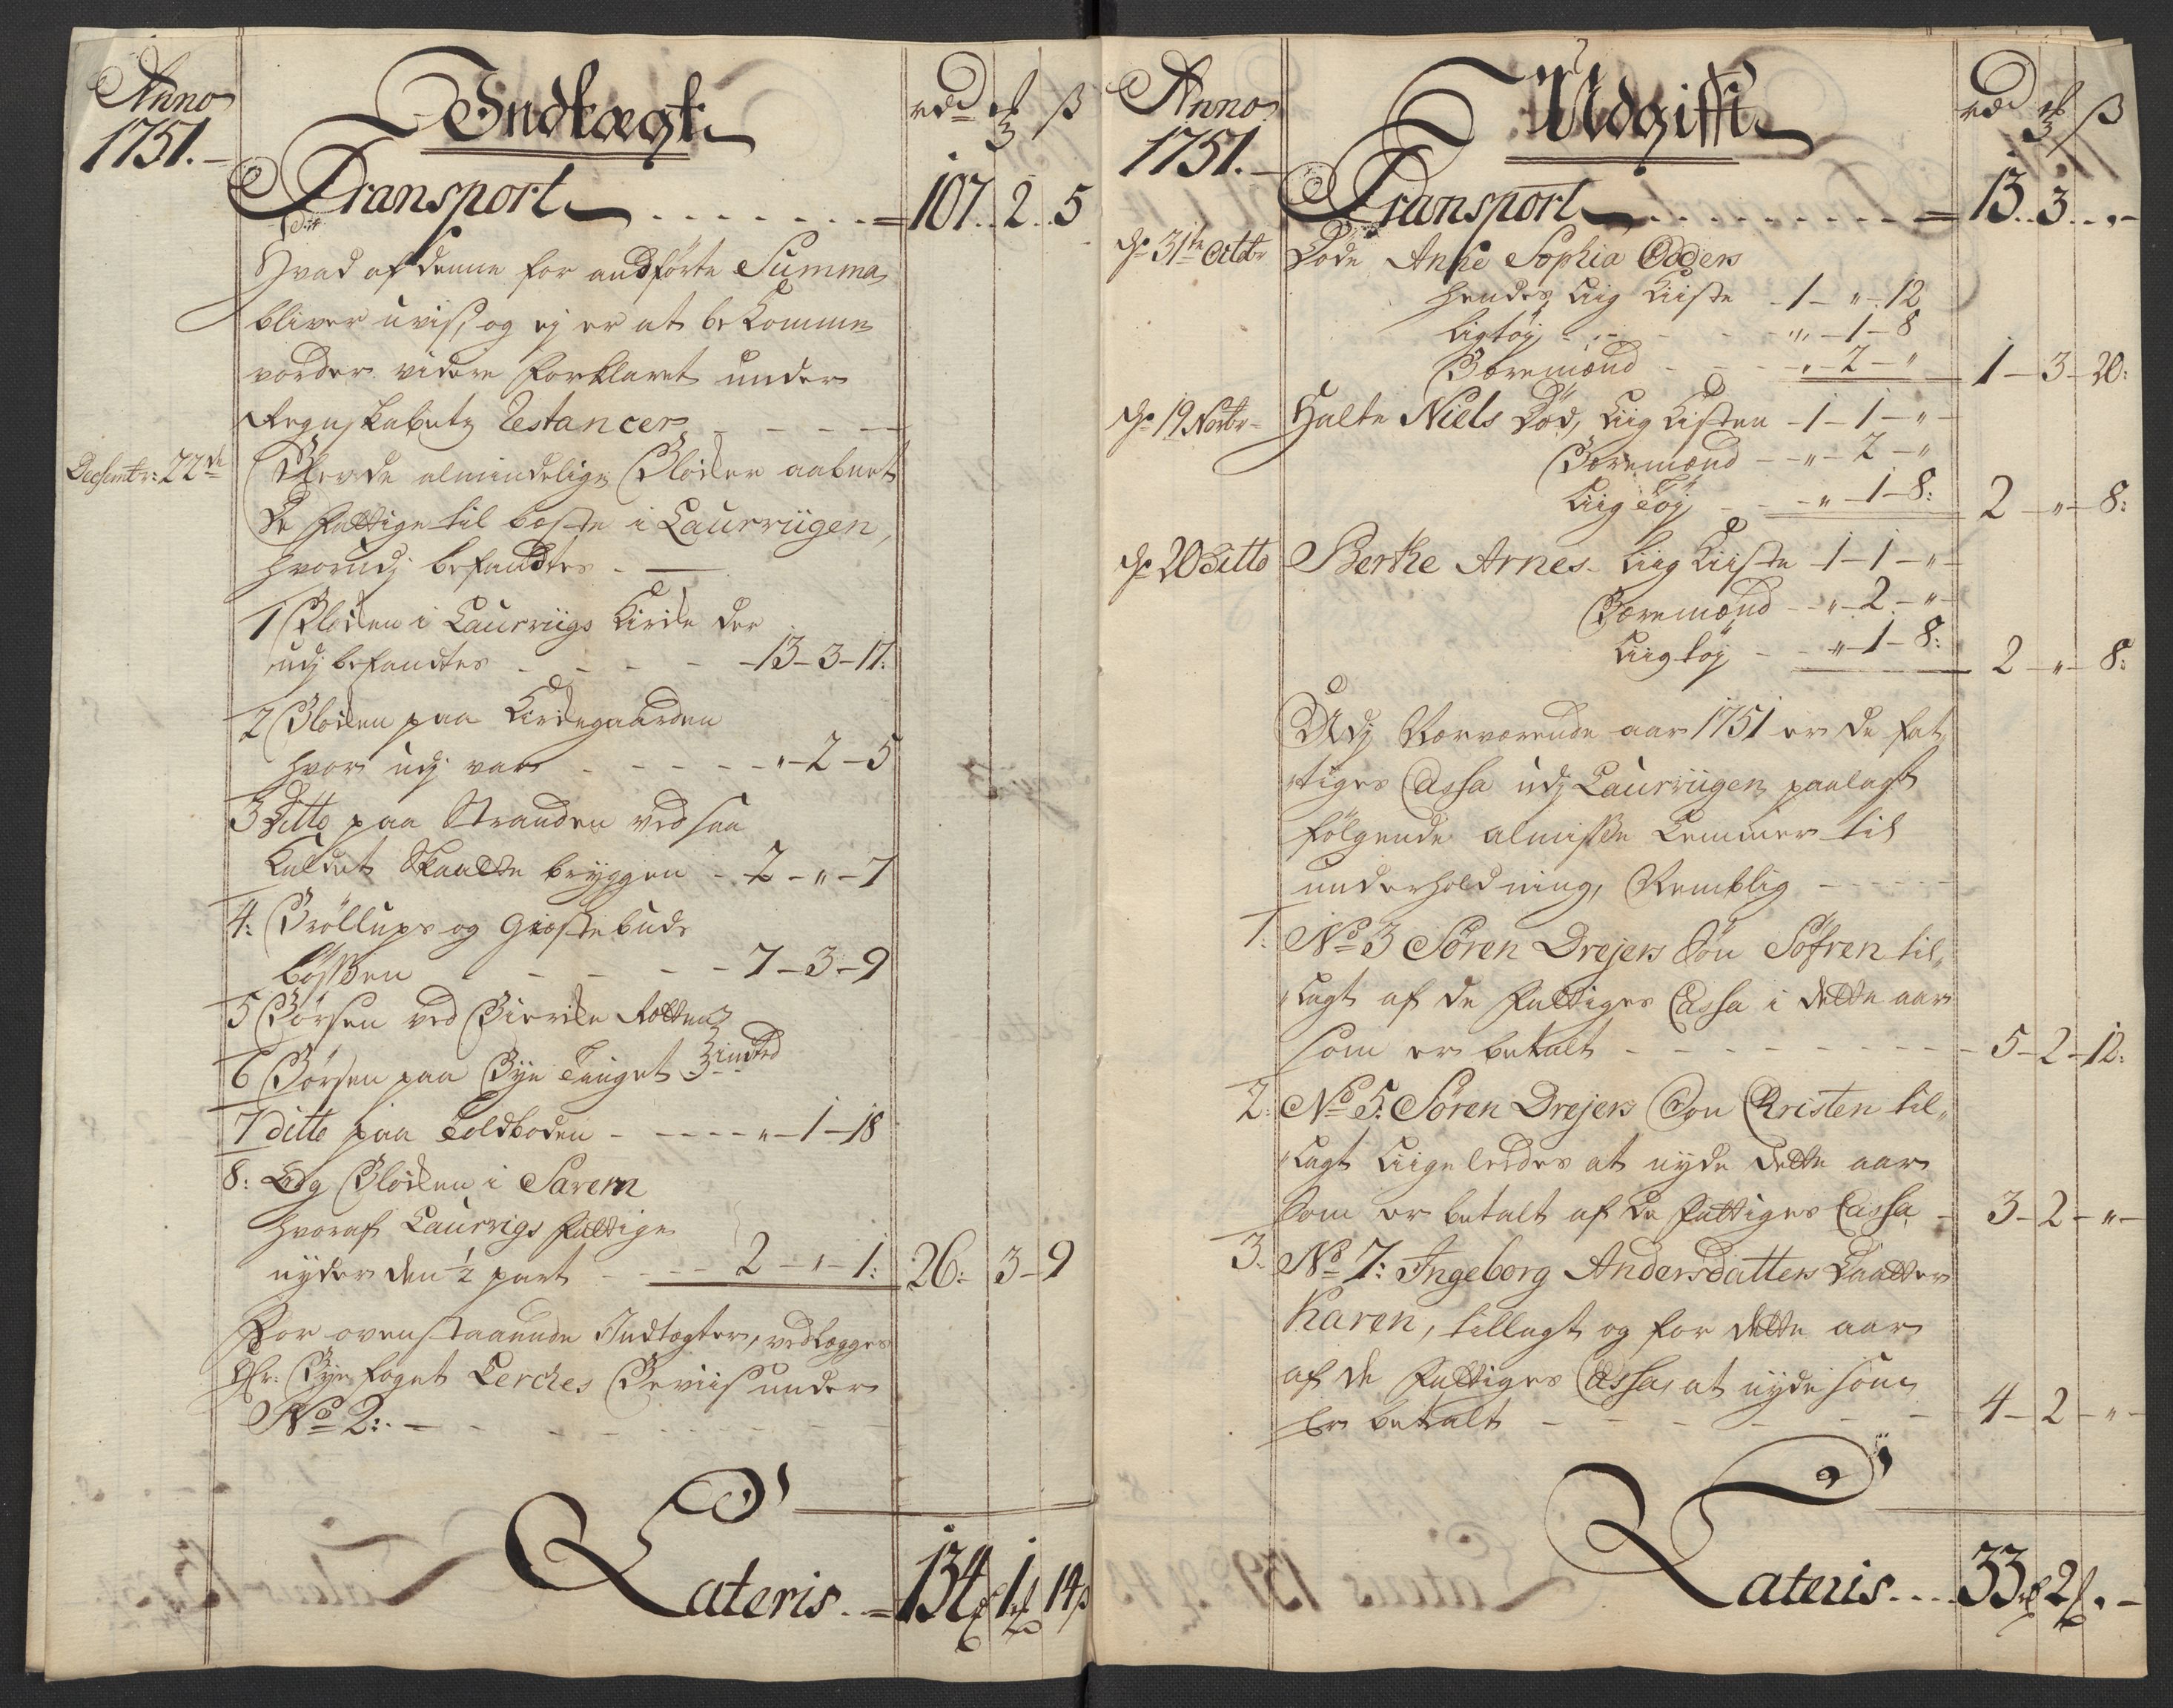 Anno
1751.
Indtægt
rdr ort ß
Transport 107. 2. 5
Hvad af denne for andførte Summa
bliver uvis, og ej er at bekomme
vorder videre forklaret under
Regnskabetz Restancer
Decembr: 22de Blev de almindelige Blocker aabnet
de fattige til beste i Laurviigen,
hvorudj befandtes
1 Blocken i Laurviigs Kircke der
udj befandtes 13-3-17:
2 Blocken paa Kirckegaarden
hvor udj var "-2-5
3 Ditto paa Stranden ved saa
kaldet Skaatte bryggen 2-"-7
4: Bröllups og Giæstebuds
bössen 7-3-9
5 Börsen ved
6 Börsen paa Bye Tinget 3 intted
7 ditto paa Toldboden "-1-18
8: Og Blocken i
hvoraf Laurvigs fattige
nyder den 1/2 part 2-"-1: 26: 3-9
For ovenstaaende Indtægter, vedlegges
Hr: Bye foget Lerches Beviis under
No 2:
Lateris 134 1 14ß
Anno
1751.
Udgifft
rdr ort ß
Transport 13. 3. "
31te Octbr Döde Anne Sophia Odders
hendes Liig Kiiste 1-"-12
Ligtöj "-1-8
Bæremænd "-2-" 1-3-20:
19 Novbr Halte Niels Död, Liig Kisten 1-1-"
Bæremænd "-2-"
Liig töj "-1-8: 2-"-8:
20 Ditto Berthe Arnes Liig Kiiste 1-1-"
Bæremænd "-2-"
Liigtöj "-1-8: 2-"-8:
Udj Nærværende aar 1751 er de fat
tiges Cassa udj Laurviigen paalagt
fölgende almisse Lemmer til
underholdning, Nemblig
1: No 3 Sören Drejers Sön Söfren til
lagt af de fattiges Cassa i dette aar
som er betalt 5-2-12:
2: No 5: Sören Drejers Sön Christen til
lagt Liigeledes at nyde dette aar
som er betalt af de fattiges Cassa 3-2-"
3: No 7: Ingeborg Andersdatters Daatter
Karen, tillagt og for dette aar
af de fattiges Cassa at nyde som
Er betalt 4-2-"
Lateris 33 2 "